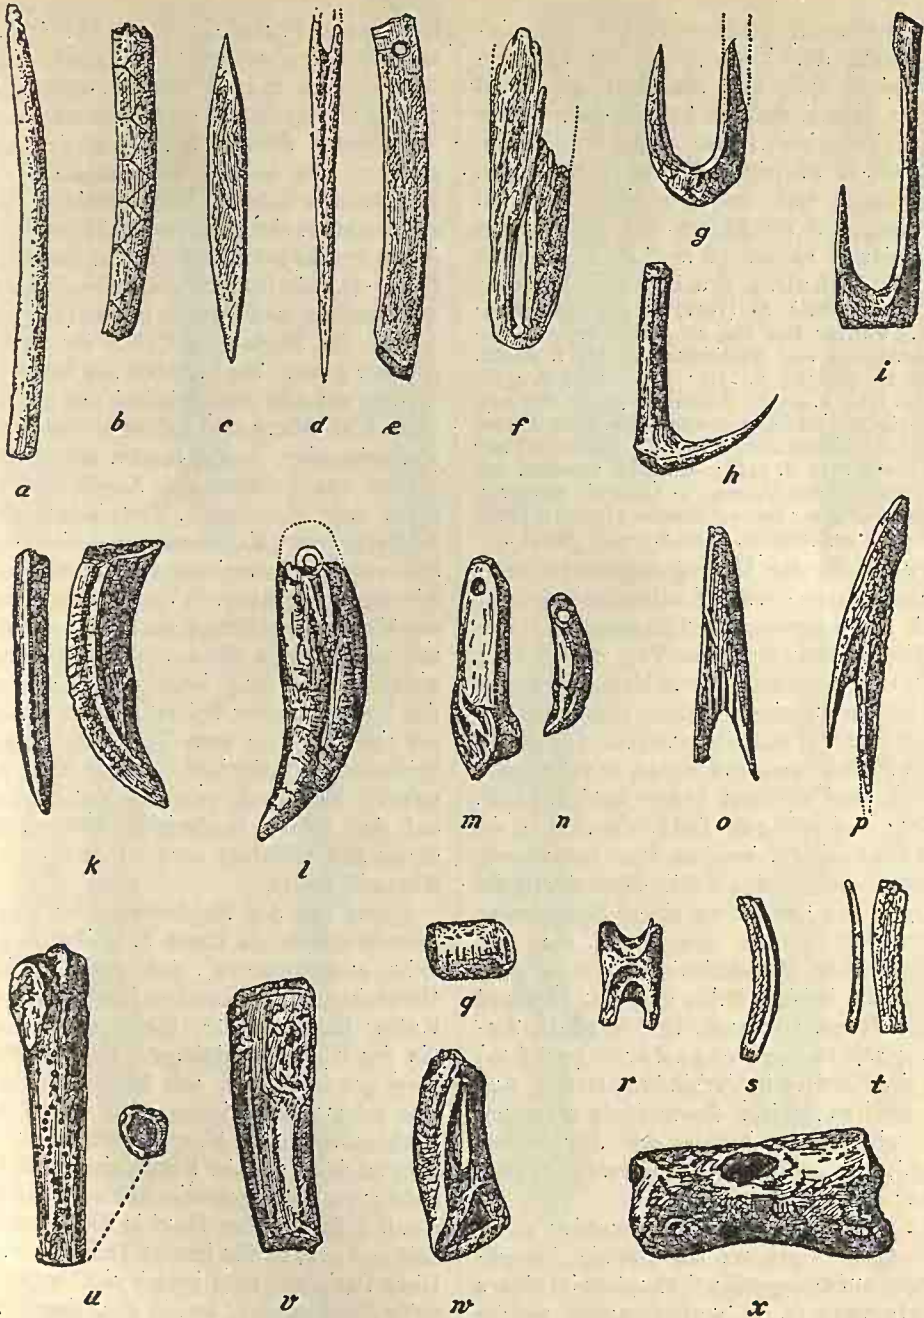 g
i
b c d e f h
a
k l m n o p
q
r s t
u v w x